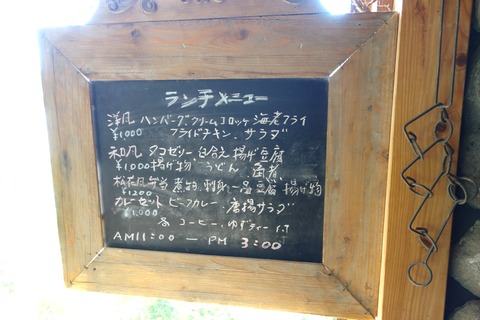 ランチメニュー
洋風 ハンバーグ クリームコロッケ 海老フライ
¥1000 フライドチキン、サラダ
和風 タコゼリー 白和え 揚げ豆腐
¥1000 揚げ物 うどん
松花風弁当 煮物 刺身 一品 豆腐 揚げ物
¥1200
カレーセット ビーフカレー 唐揚サラダ
¥1000
各 コーヒー、ゆずティー
AM11:00 — PM 3:00